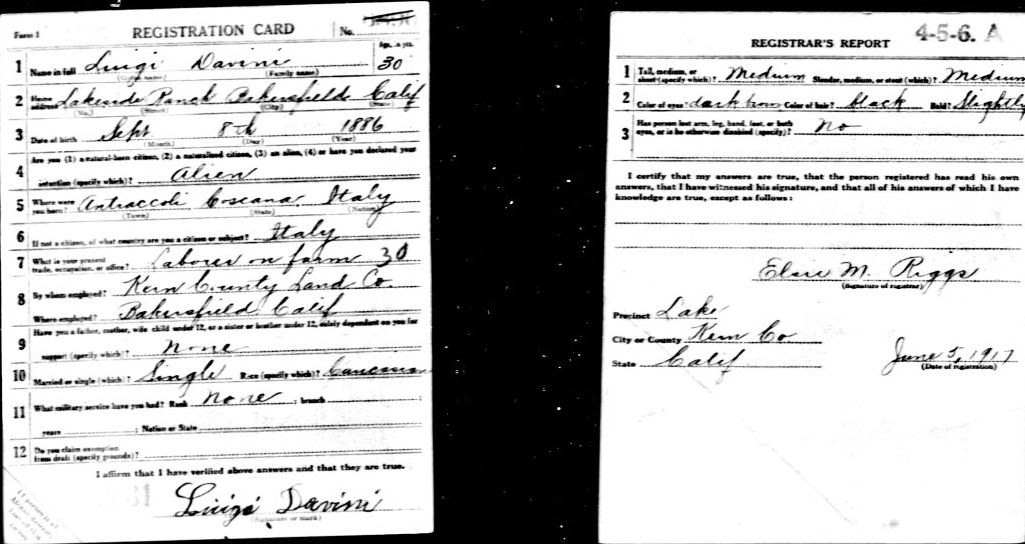 Form 1
REGISTRATION CARD
No.
1 Name in full Luigi Davini Age, in yrs. 30
(Given name) (Family name)
2 Home address Lakeside Ranch Bakersfield Calif
(No.) (Street) (City) (State)
3 Date of birth Sept 8th 1886
(Month) (Day) (Year)
4 Are you (1) a natural-born citizen, (2) a naturalized citizen, (3) an alien, (4) or have you declared your
intention (specify which)? Alien
5 Where were you born? Antraccoli Toscana Italy
(Town) (State) (Nation)
6 If not a citizen, of what country are you a citizen or subject? Italy
7 What is your present trade, occupation, or office? Laborer on farm 30
8 By whom employed? Kern County Land Co.
Where employed? Bakersfield Calif
9 Have you a father, mother, wife child under 12, or a sister or brother under 12, solely dependent on you for
support (specify which)? None
10 Married or single (which)? Single Race (specify which)? Caucasian
11 What military service have you had? Rank None ; branch
years ; Nation or State
12 Do you claim exemption from draft (specify grounds)?
I affirm that I have verified above answers and that they are true.
Luigi Davini
(Signature or mark)
REGISTRAR'S REPORT
4-5-6. A
1 Tall, medium, or short (specify which)? Medium Slender, medium, or stout (which)? Medium
2 Color of eyes? dark brown Color of hair? black Bald? Slightly
3 Has person lost arm, leg, hand, foot, or both eyes, or is he otherwise disabled (specify)? No
I certify that my answers are true, that the person registered has read his own
answers, that I have witnessed his signature, and that all of his answers of which I have
knowledge are true, except as follows:
Elsie M. Riggs
(Signature of registrar)
Precinct Lake
City or County Kern Co
State Calif
June 5, 1917
(Date of registration)